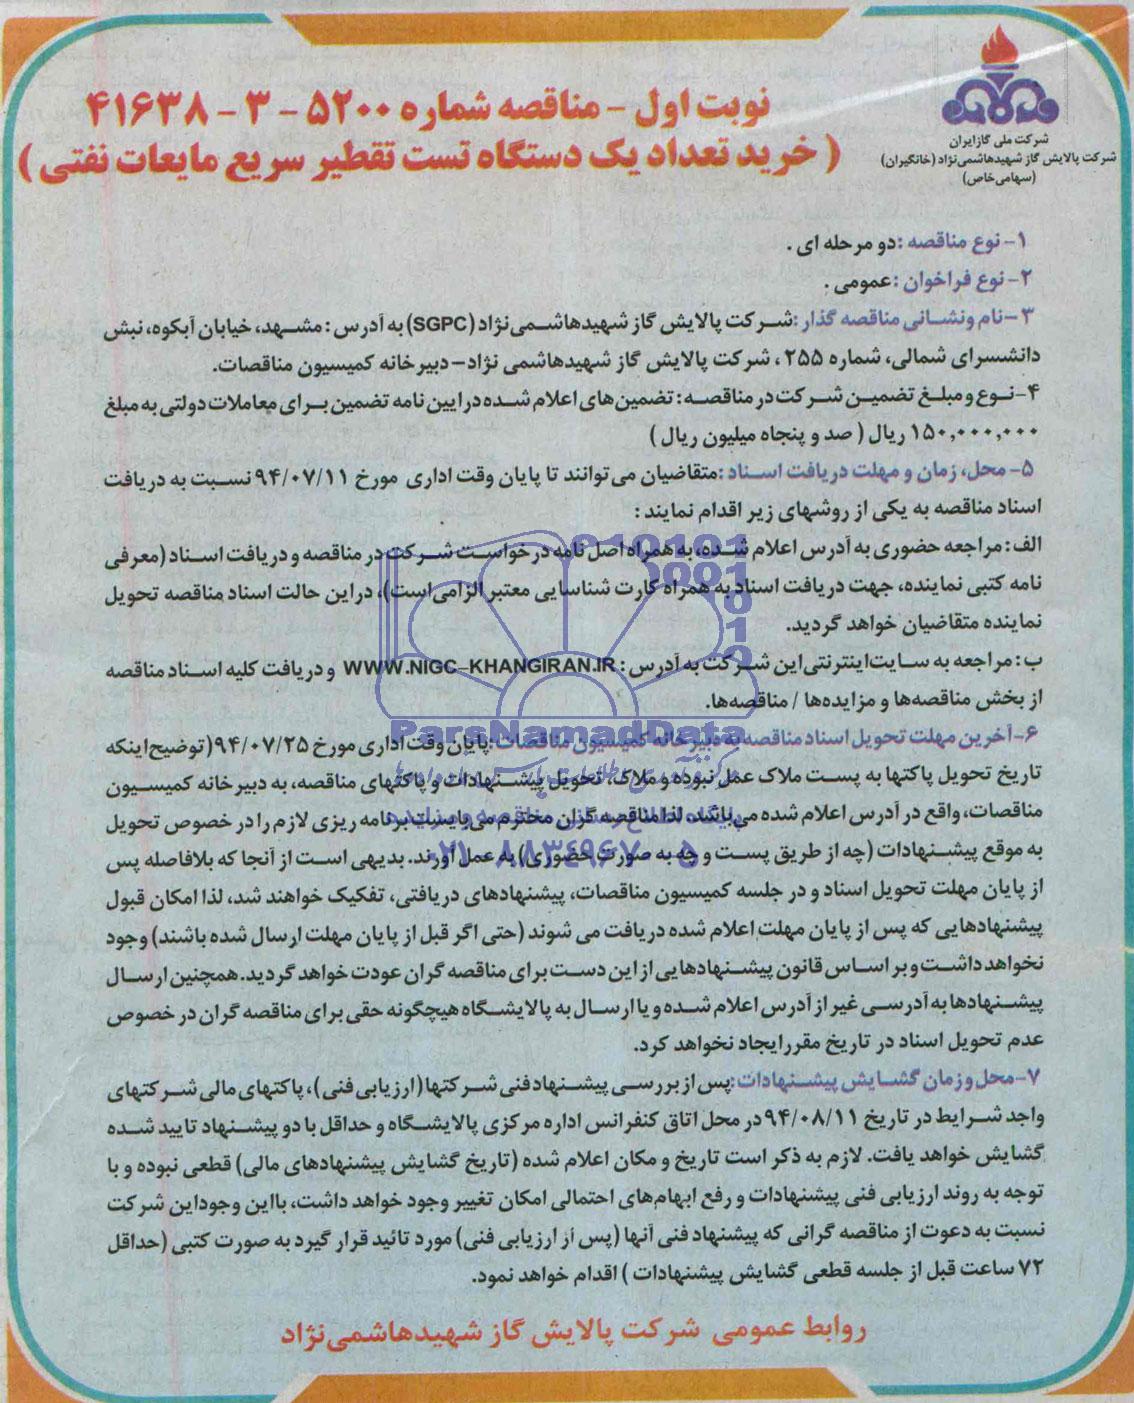 شرکت ملی گاز ایران
شرکت پالایش گاز شهیدهاشمی‌نژاد (خانگیران)
(سهامی خاص)
نوبت اول - مناقصه شماره ۵۲۰۰ - ۳ - ۴۱۶۳۸
( خرید تعداد یک دستگاه تست تقطیر سریع مایعات نفتی )
۱- نوع مناقصه : دو مرحله ای .
۲- نوع فراخوان : عمومی .
۳- نام ونشانی مناقصه گذار : شرکت پالایش گاز شهیدهاشمی‌نژاد (SGPC) به آدرس : مشهد، خیابان آبکوه، نبش
دانشسرای شمالی، شماره ۲۵۵ ، شرکت پالایش گاز شهیدهاشمی نژاد – دبیرخانه کمیسیون مناقصات.
۴- نوع و مبلغ تضمین شرکت در مناقصه : تضمین های اعلام شده در ایین نامه تضمین برای معاملات دولتی به مبلغ
۱۵۰,۰۰۰,۰۰۰ ریال ( صد و پنجاه میلیون ریال )
۵- محل، زمان و مهلت دریافت اسناد : متقاضیان می توانند تا پایان وقت اداری مورخ ۹۴/۰۷/۱۱ نسبت به دریافت
اسناد مناقصه به یکی از روشهای زیر اقدام نمایند :
الف : مراجعه حضوری به آدرس اعلام شده، به همراه اصل نامه درخواست شرکت در مناقصه و دریافت اسناد (معرفی
نامه کتبی نماینده، جهت دریافت اسناد به همراه کارت شناسایی معتبر الزامی‌است)، دراین حالت اسناد مناقصه تحویل
نماینده متقاضیان خواهد گردید.
ب : مراجعه به سایت‌اینترنتی‌این شرکت به آدرس : WWW.NIGC-KHANGIRAN.IR و دریافت کلیه اسناد مناقصه
از بخش مناقصه‌ها و مزایده‌ها / مناقصه‌ها.
ParsNamadData
۶- آخرین مهلت تحویل اسناد مناقصه به دبیرخانه کمیسیون مناقصات : پایان وقت اداری مورخ ۹۴/۰۷/۲۵ (توضیح‌اینکه
تاریخ تحویل پاکتها به پست ملاک عمل نبوده و ملاک، تحویل پیشنهادات و پاکتهای مناقصه، به دبیرخانه کمیسیون
مناقصات، واقع در آدرس اعلام شده می‌باشد، لذا مناقصه گران محترم می‌بایست برنامه ریزی لازم را در خصوص تحویل
به موقع پیشنهادات (چه از طریق پست و چه به صورت حضوری) به عمل آورند. بدیهی است از آنجا که بلافاصله پس
۰۲۱-۸۸۳۴۹۶۷۰-۵
از پایان مهلت تحویل اسناد و در جلسه کمیسیون مناقصات، پیشنهادهای دریافتی، تفکیک خواهند شد، لذا امکان قبول
پیشنهادهایی که پس از پایان مهلت اعلام شده دریافت می شوند (حتی اگر قبل از پایان مهلت ارسال شده باشند) وجود
نخواهد داشت و بر اساس قانون پیشنهادهایی از این دست برای مناقصه گران عودت خواهد گردید. همچنین ارسال
پیشنهادها به آدرسی غیر از آدرس اعلام شده و یا ارسال به پالایشگاه هیچگونه حقی برای مناقصه گران در خصوص
عدم تحویل اسناد در تاریخ مقررایجاد نخواهد کرد.
۷- محل و زمان گشایش پیشنهادات : پس از بررسی پیشنهاد فنی شرکتها (ارزیابی فنی )، پاکتهای مالی شرکتهای
واجد شرایط در تاریخ ۹۴/۰۸/۱۱ در محل اتاق کنفرانس اداره مرکزی پالایشگاه و حداقل با دو پیشنهاد تایید شده
گشایش خواهد یافت. لازم به ذکر است تاریخ و مکان اعلام شده (تاریخ گشایش پیشنهادهای مالی) قطعی نبوده و با
توجه به روند ارزیابی فنی پیشنهادات و رفع ابهام‌های احتمالی امکان تغییر وجود خواهد داشت، بااین وجوداین شرکت
نسبت به دعوت از مناقصه گرانی که پیشنهاد فنی آنها (پس از ارزیابی فنی) مورد تائید قرار گیرد به صورت کتبی (حداقل
۷۲ ساعت قبل از جلسه قطعی گشایش پیشنهادات ) اقدام خواهد نمود.
روابط عمومی شرکت پالایش گاز شهیدهاشمی‌نژاد